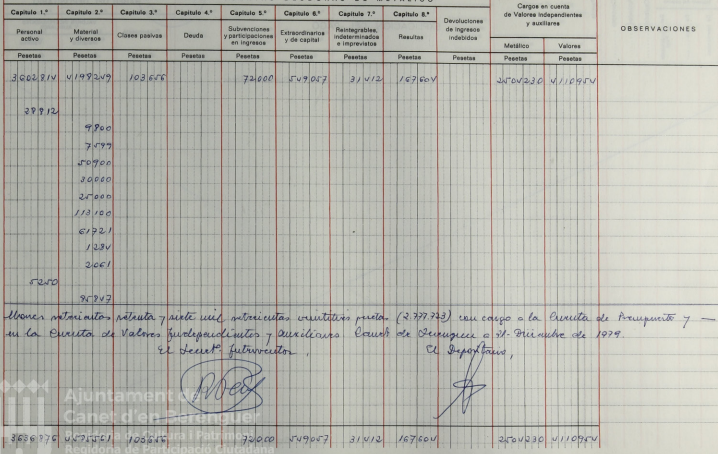 Capítulo 1.º Capítulo 2.º Capítulo 3.º Capítulo 4.º Capítulo 5.º Capítulo 6.º Capítulo 7.º Capítulo 8.º Devoluciones de ingresos indebidos Cargos en cuenta de Valores independientes y auxiliares OBSERVACIONES
Personal activo Material y diversos Clases pasivas Deuda Subvenciones y participaciones en ingresos Extraordinarios y de capital Reintegrables, indeterminados e imprevistos Resultas Metálico Valores
Pesetas Pesetas Pesetas Pesetas Pesetas Pesetas Pesetas Pesetas Pesetas Pesetas Pesetas
3602814 4198249 103656 72000 549057 31412 167604 2504230 4110954
28912
9800
7599
50900
30000
25000
113100
61721
1284
2061
5250
95847
setecientos setenta y siete mil setecientos (2.777.723) con cargo a la Cuenta de Presupuesto y —
en la Cuenta de Valores Independientes y Auxiliares. Canet de Berenguer a 31 Diciembre de 1979.
El Secret. Interventor, El Depositario,
Ajuntament de
Canet d'en Berenguer
Regidoria de Cultura i Patrimoni
Regidoria de Participació Ciutadana
3636976 4575561 103656 72000 549057 31412 167604 2504230 4110954